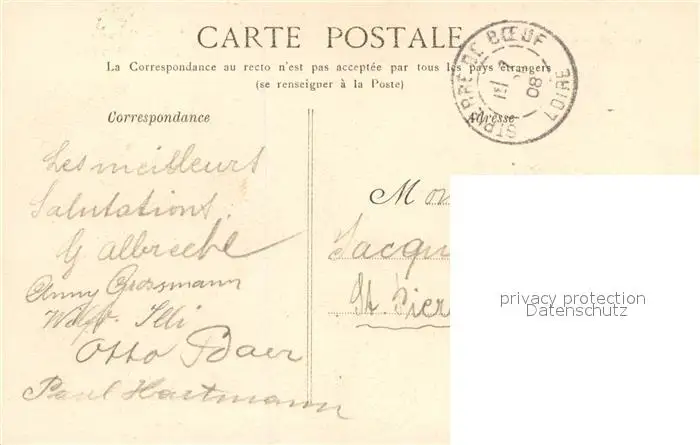 CARTE POSTALE
La Correspondance au recto n'est pas acceptée par tous les pays étrangers
(se renseigner à la Poste)
ST PIERRE DE BŒUF
08
LOIRE
Correspondance
Adresse
Les meilleurs
Salutations.
G Albrecht
Anny Grossmann
Illi
Otto Baer
Paul Hartmann
Mon
Jacqu
St. Pier
privacy protection
Datenschutz